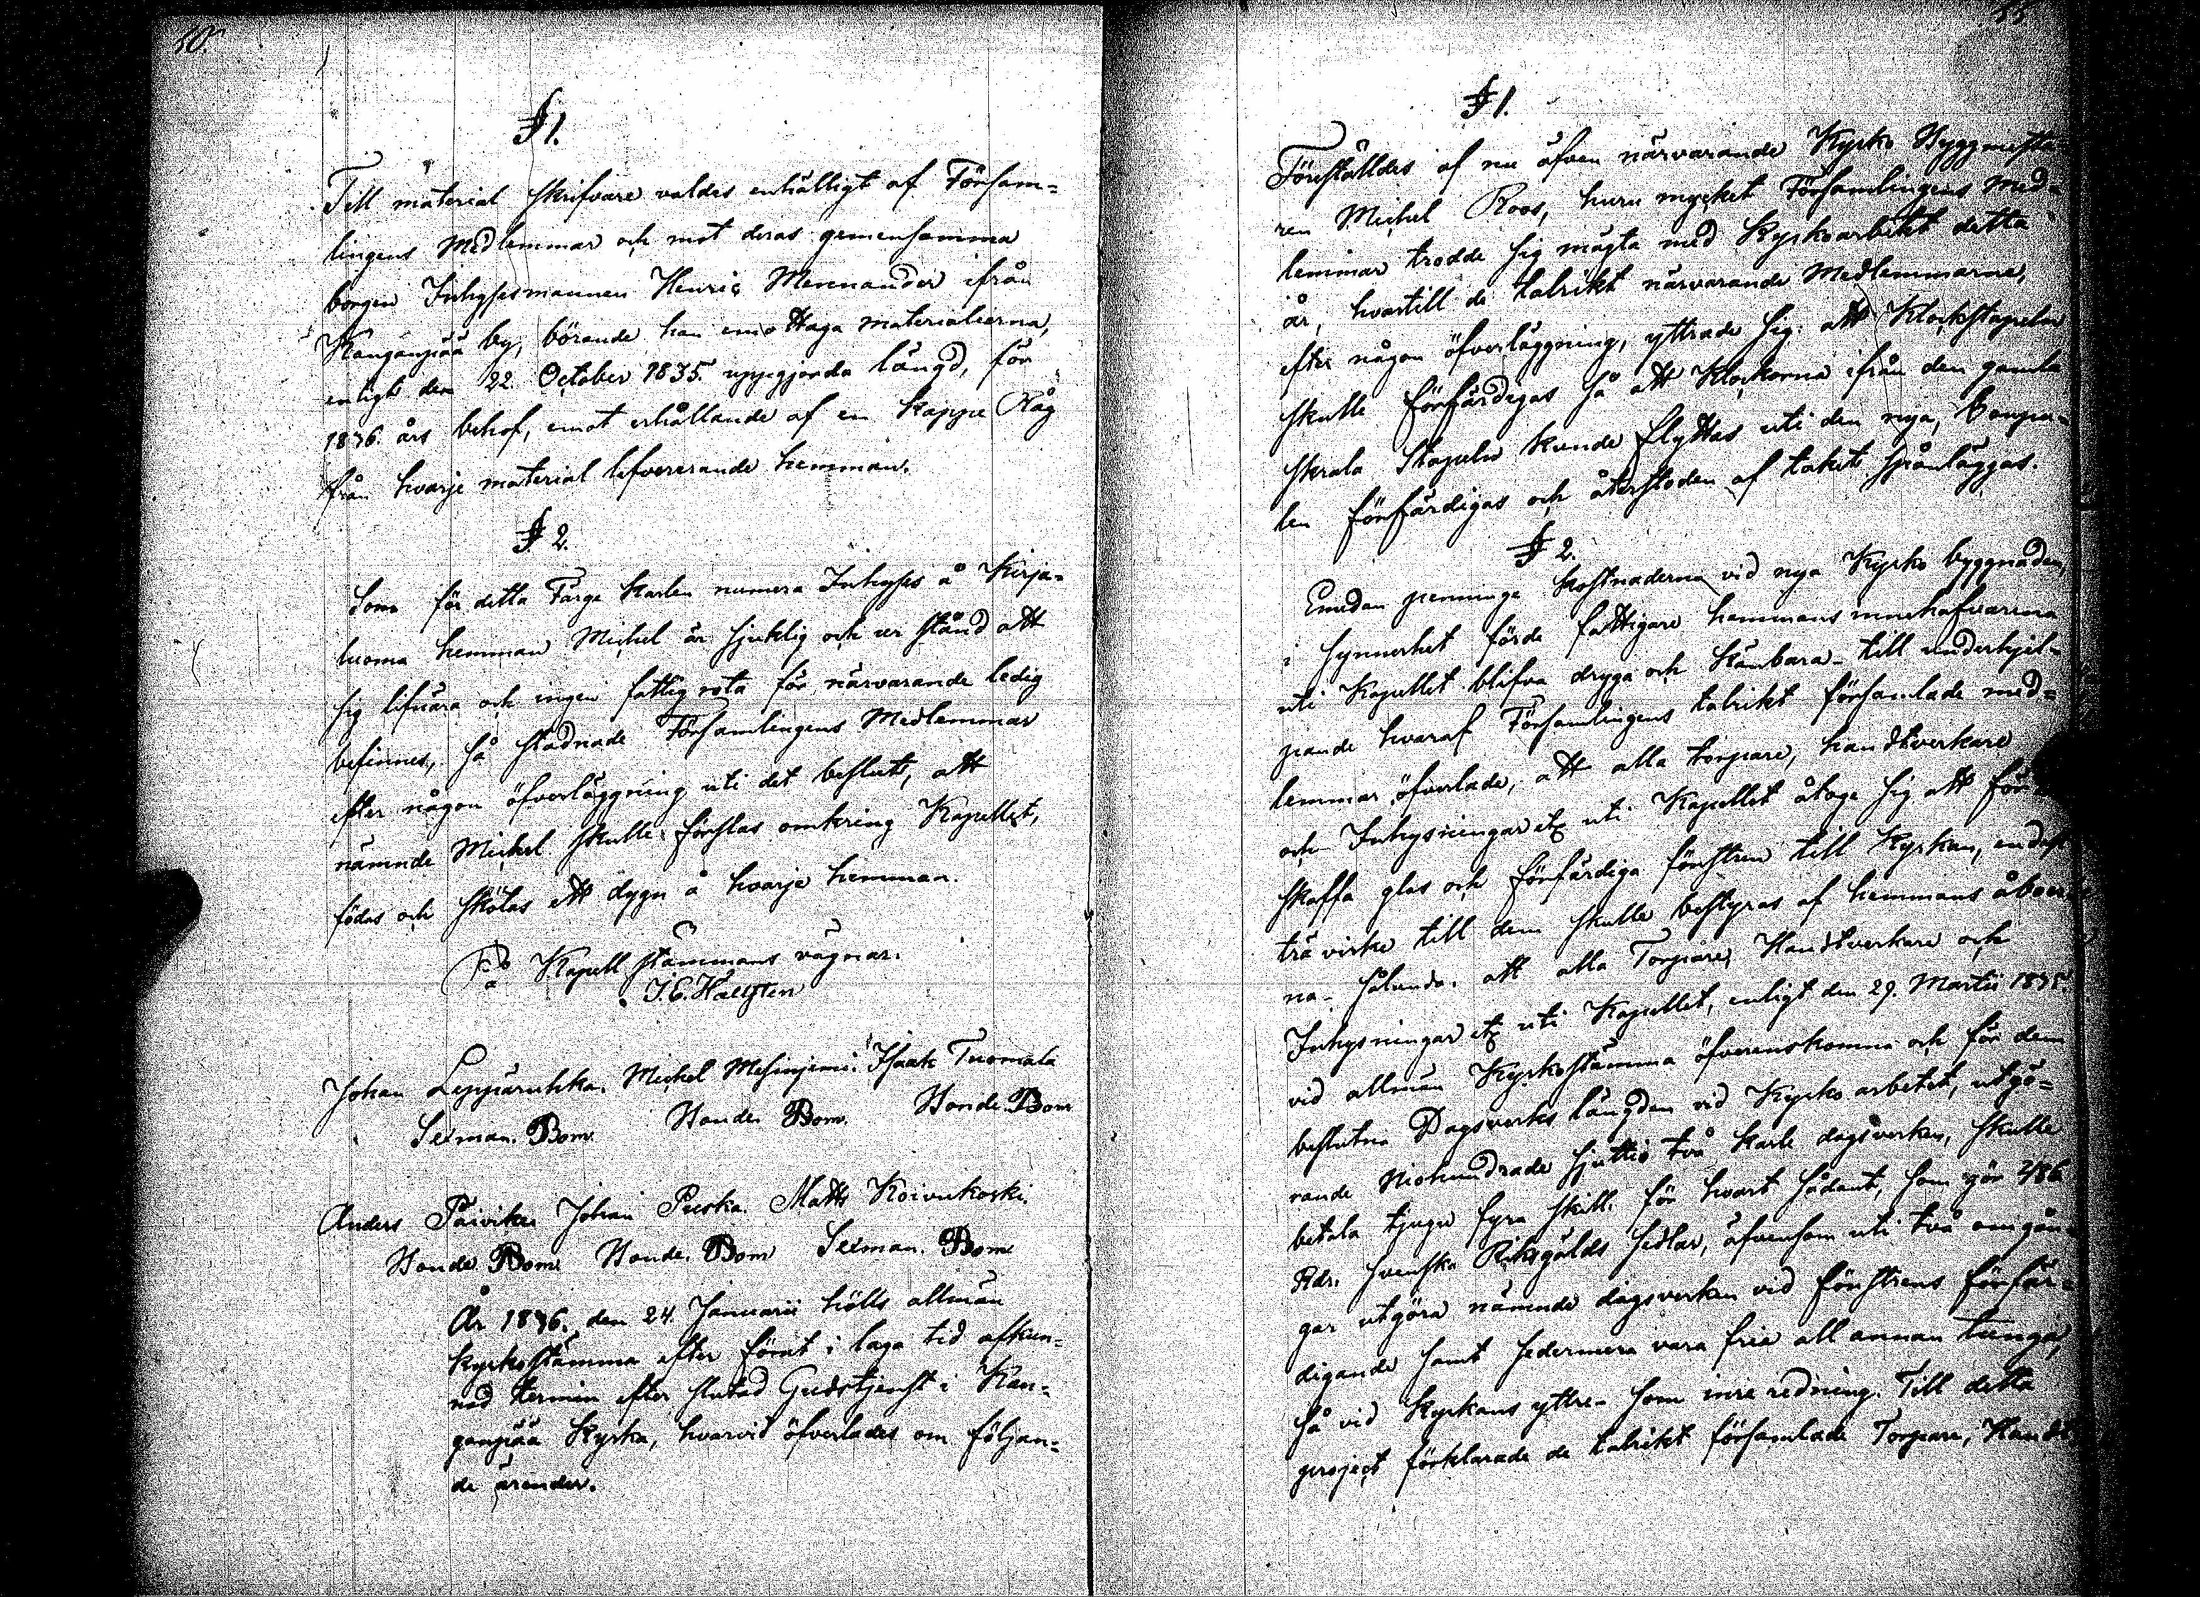 50.
§ 1.
Till material skrifvare valdes enhälligt af Försam=
lingens Medlemmar och mot deras gemensamma
borgen Inhysesmannen Henric Mennander ifrån
Kanganpää by, börande han emottaga materialierna,
enligt den 22 October 1835. uppgjorda längd, för
1836. års behof, emot erhållande af en kappe Råg
från hvarje material lefvererande hemman.
§ 2.
Som för detta Färge Karlen numera Inhyses å Kirja=
luoma hemman Michel är sjuklig och ur stånd att
sig lifnära och ingen fattig rota för närvarande ledig
befinnes, så stadnade Församlingens Medlemmar
efter någon öfverläggning uti det beslut, att
nämnde Michel skulle förslas omkring Kapellet,
födas och skötas ett dygn å hvarje hemman.
På Kapell stämmans vägnar.
J. E. Hallsten
Johan Leppäruhka. Michel Mesinjemi. Isaak Tuomala
Sexman. Bom. Bonde. Bom. Bonde. Bom
Anders Päivike Johan Puska. Matts Koivukoski.
Bonde. Bom Bonde. Bom Sexman. Bom
År 1836. den 24. Januarii hölls allmän
kyrkostämma efter förut i laga tid afkun=
nad termin efter slutad Gudstjenst i Kan=
ganpää Kyrka, hvarvid öfverlades om följan=
de ärender.
55
§ 1.
Föreställdes af nu äfven närvarande Kyrko Byggmästa=
ren Michel Roos, huru mycket Församlingens Med=
lemmar trodde sig mägta med Kyrkoarbetet detta
år, hvartill de talrikt närvarande Medlemmarne,
efter någon öfverläggning, yttrade sig: att Klockstapeln
skulle förfärdigas så att Klockorna ifrån den gamla
skrala Stapeln kunde flyttas uti den nya,
len förfärdigas och återstoden af taket spånläggas.
§ 2.
Emedan penninge kostnaderna vid nya Kyrko byggnaden,
i synnerhet förde fattigare hemmans innehafvarena
uti Kapellet blifva dryga och känbara - till underhjel=
pande hvaraf Församlingens talrikt församlade med=
lemmar öfverlade, att alla torpare, handtverkare
och Inhysningar etc uti Kapellet åtoge sig att för
skaffa glas och förfärdiga fönstren till Kyrkan, endast
trä virke till dem skulle bestyras af hemmans åboer
na - sålunda. att alla Torpare, Handtverkare och
Inhysningar etc uti Kapellet, enligt den 29. Martii 1835.
vid allmän Kyrkostämma öfverenskomna och för dem
beslutna Dagsverks längden vid Kyrko arbetet, utgö=
rande Niohundrade sjuttio två karle dagsverken, skulle
betala tjugu fyra skill. för hvart sådant, som gör 486
Rdr. Svenska Riksgälds sedlar, äfvensom uti två omgån=
gar utgöra nämnde dagsverken vid fönstrens förfär=
digande samt sedermera vara frie all annan tunga,
så vid kyrkans yttre - som inre redning. Till detta
project förklarade de talrikt församlade Torpare, Handt